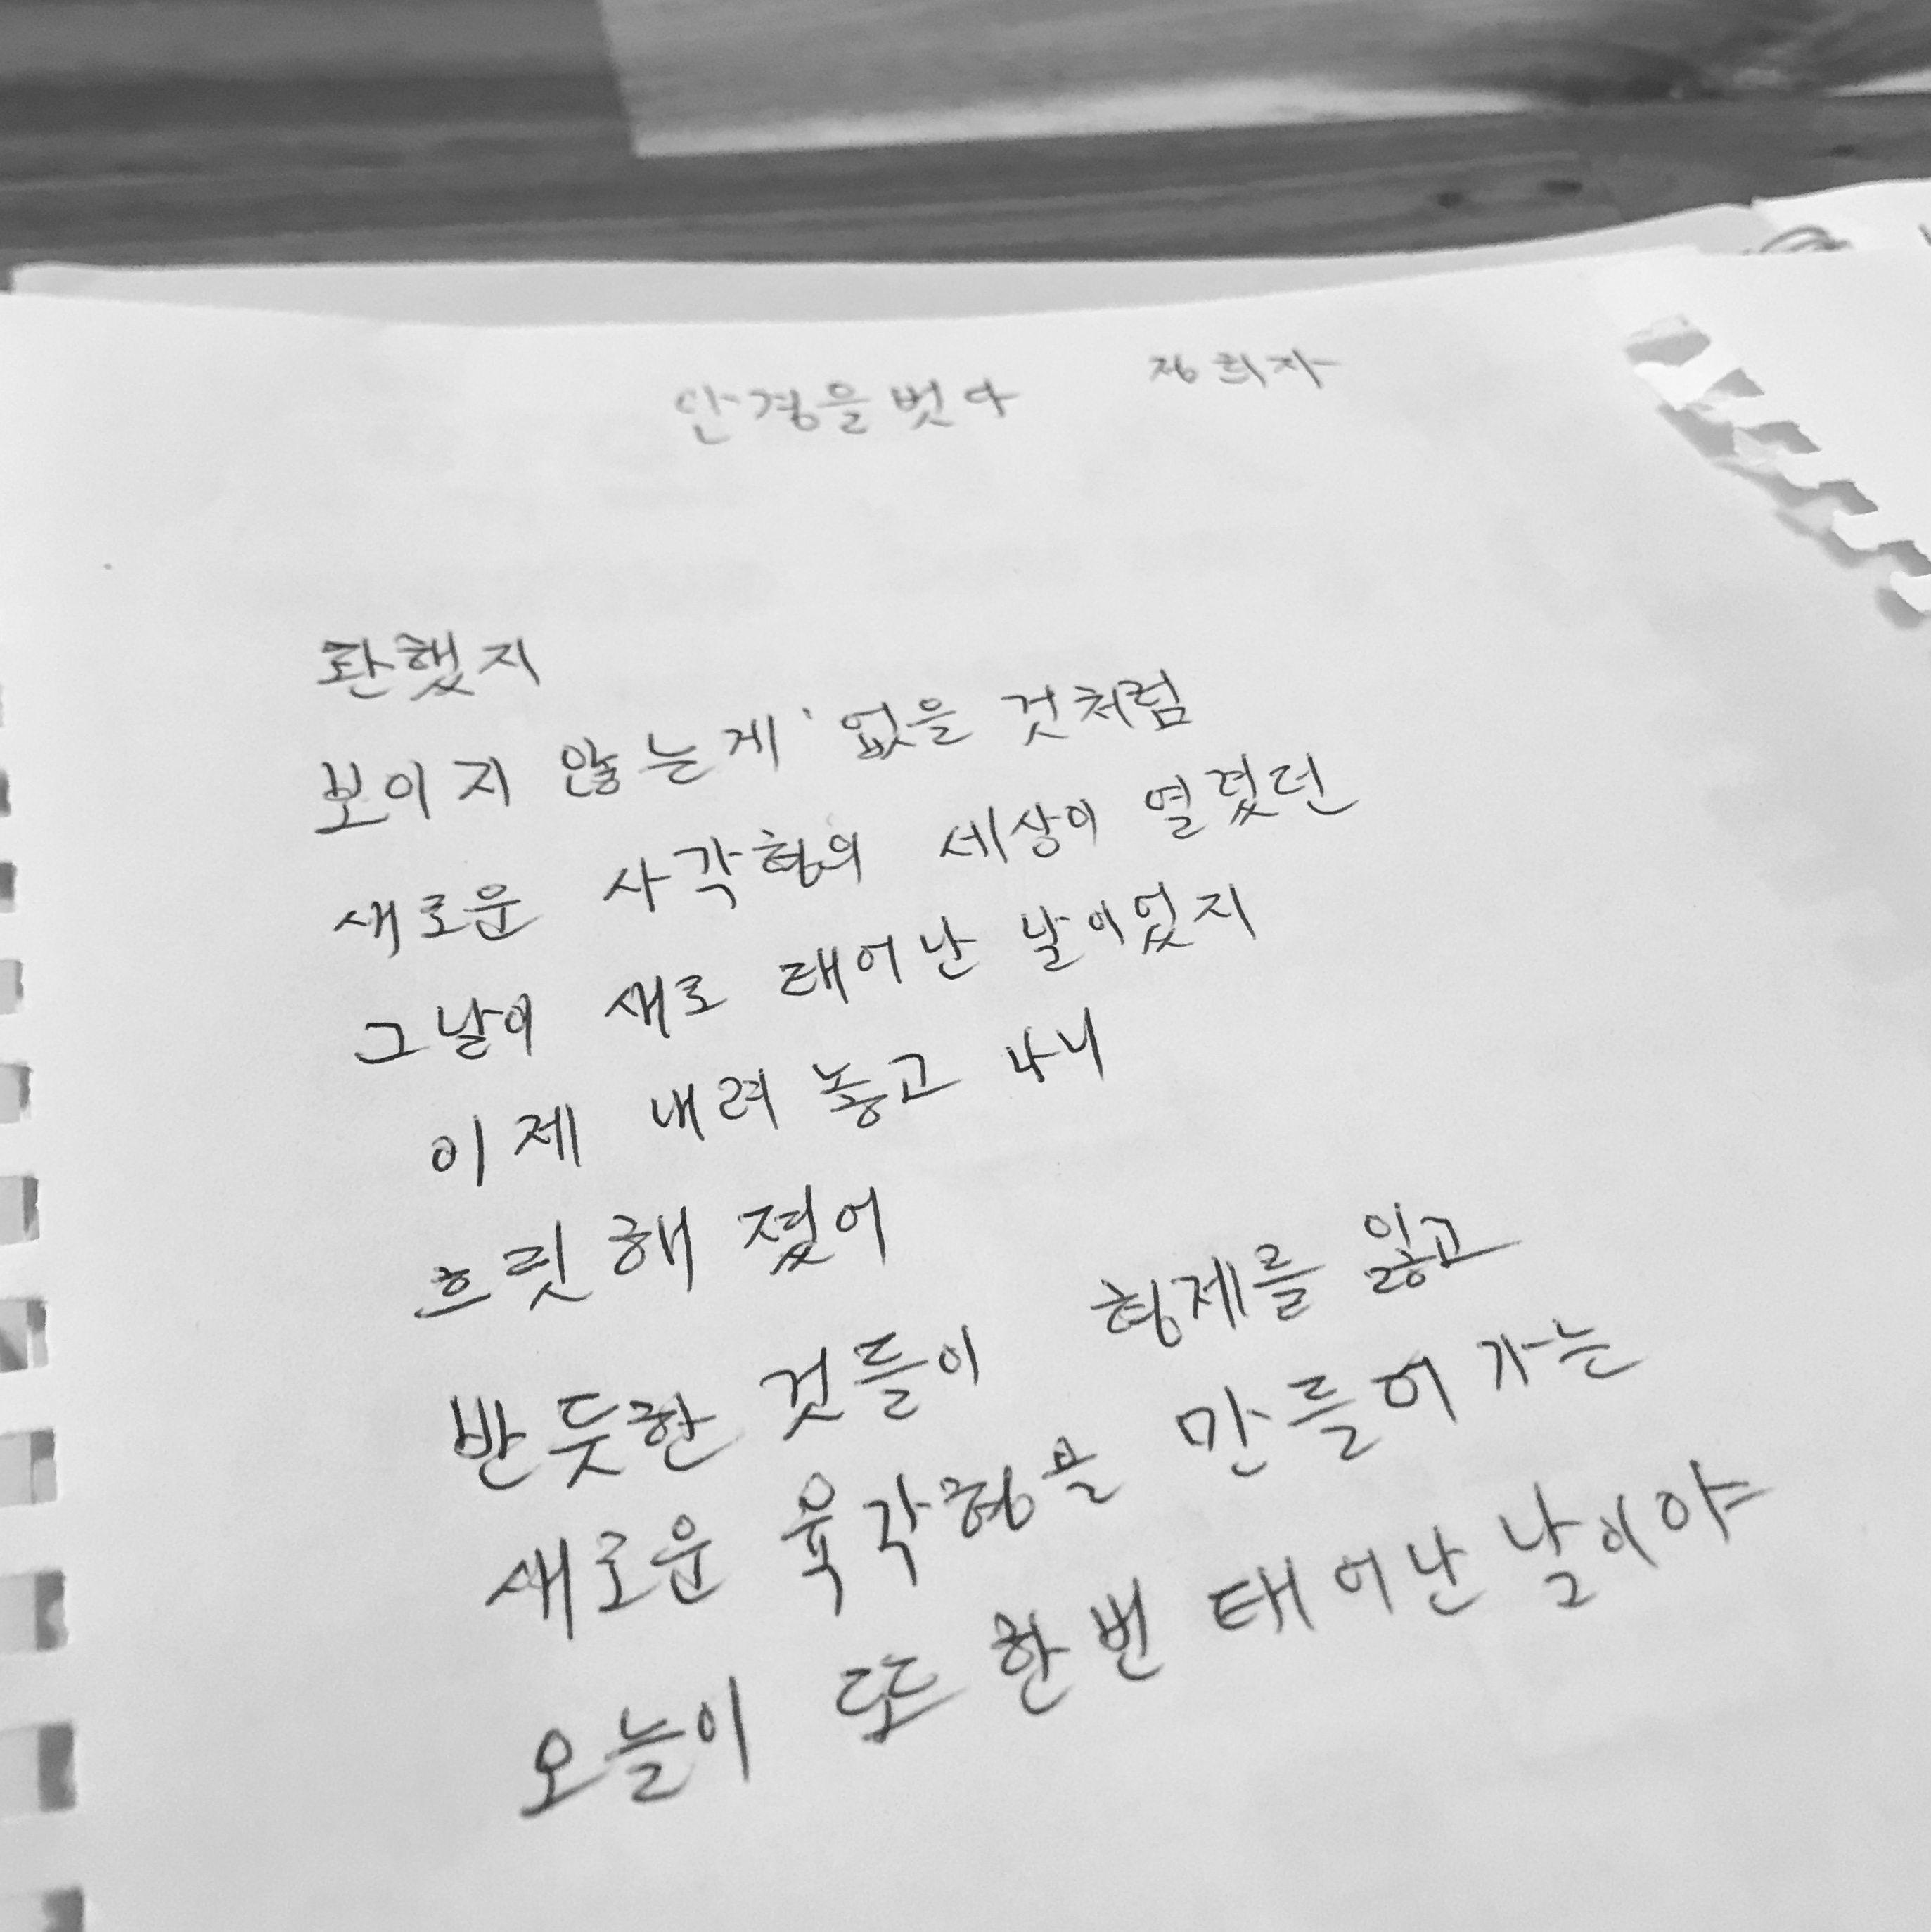 안경을 벗다 정희자
환했지
보이지 않는게 없을 것처럼
새로운 사각형의 세상이 열렸던
그날이 새로 태어난 날이었지
이제 내려 놓고 나니
흐릿해 졌어
반듯한 것들이 형제를 잃고
새로운 육각형을 만들어 가는
오늘이 또 한번 태어난 날이야